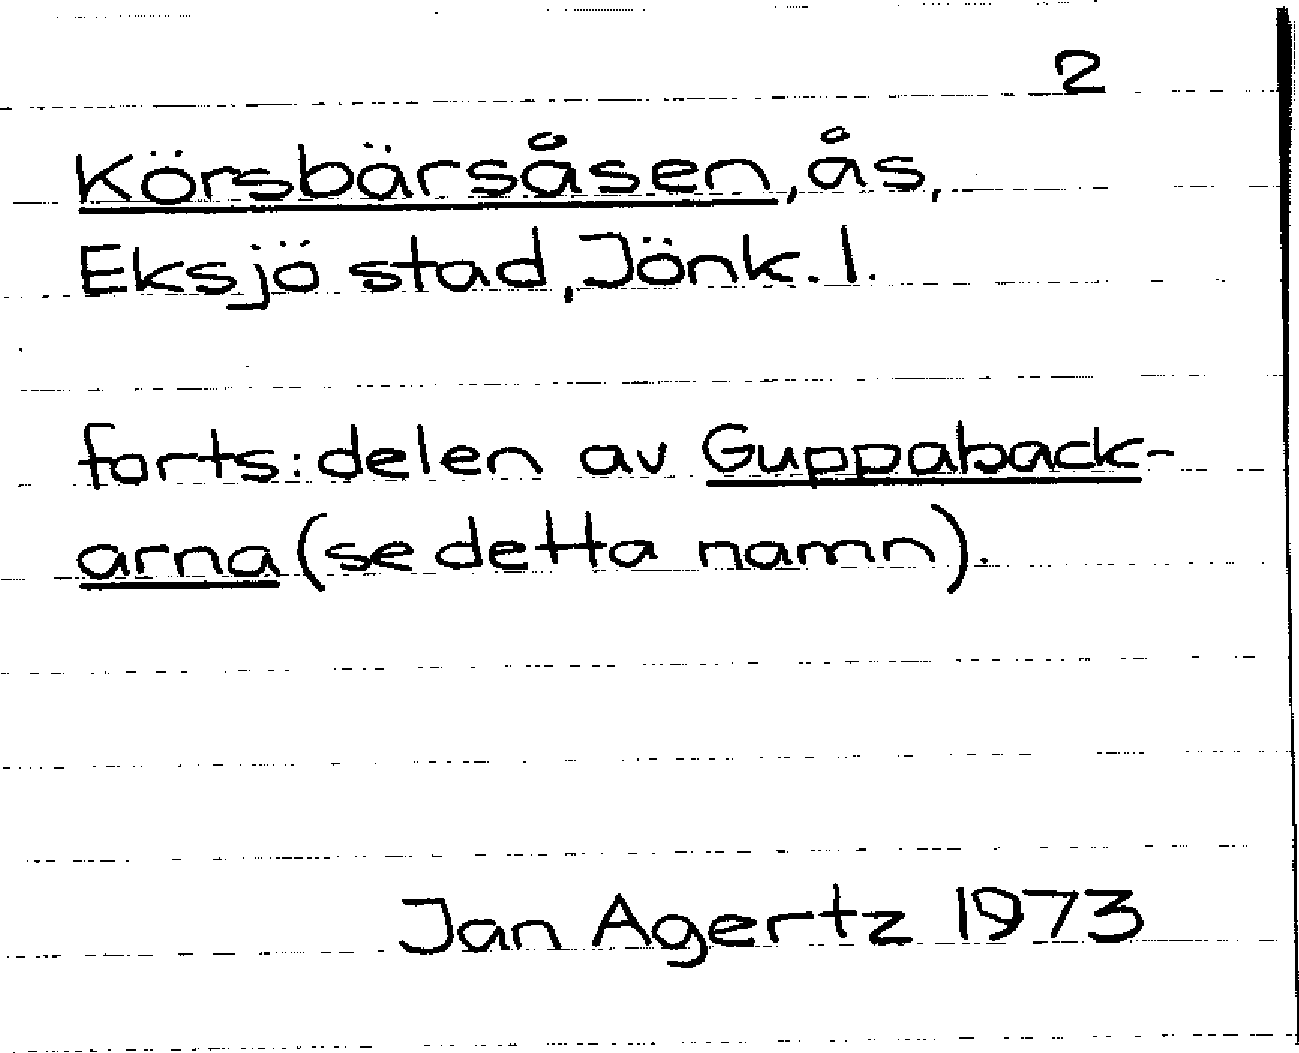 2
Körsbärsåsen, ås,
Eksjö stad, Jönk. l.
forts: delen av Guppaback-
arna (se detta namn).
Jan Agertz 1973